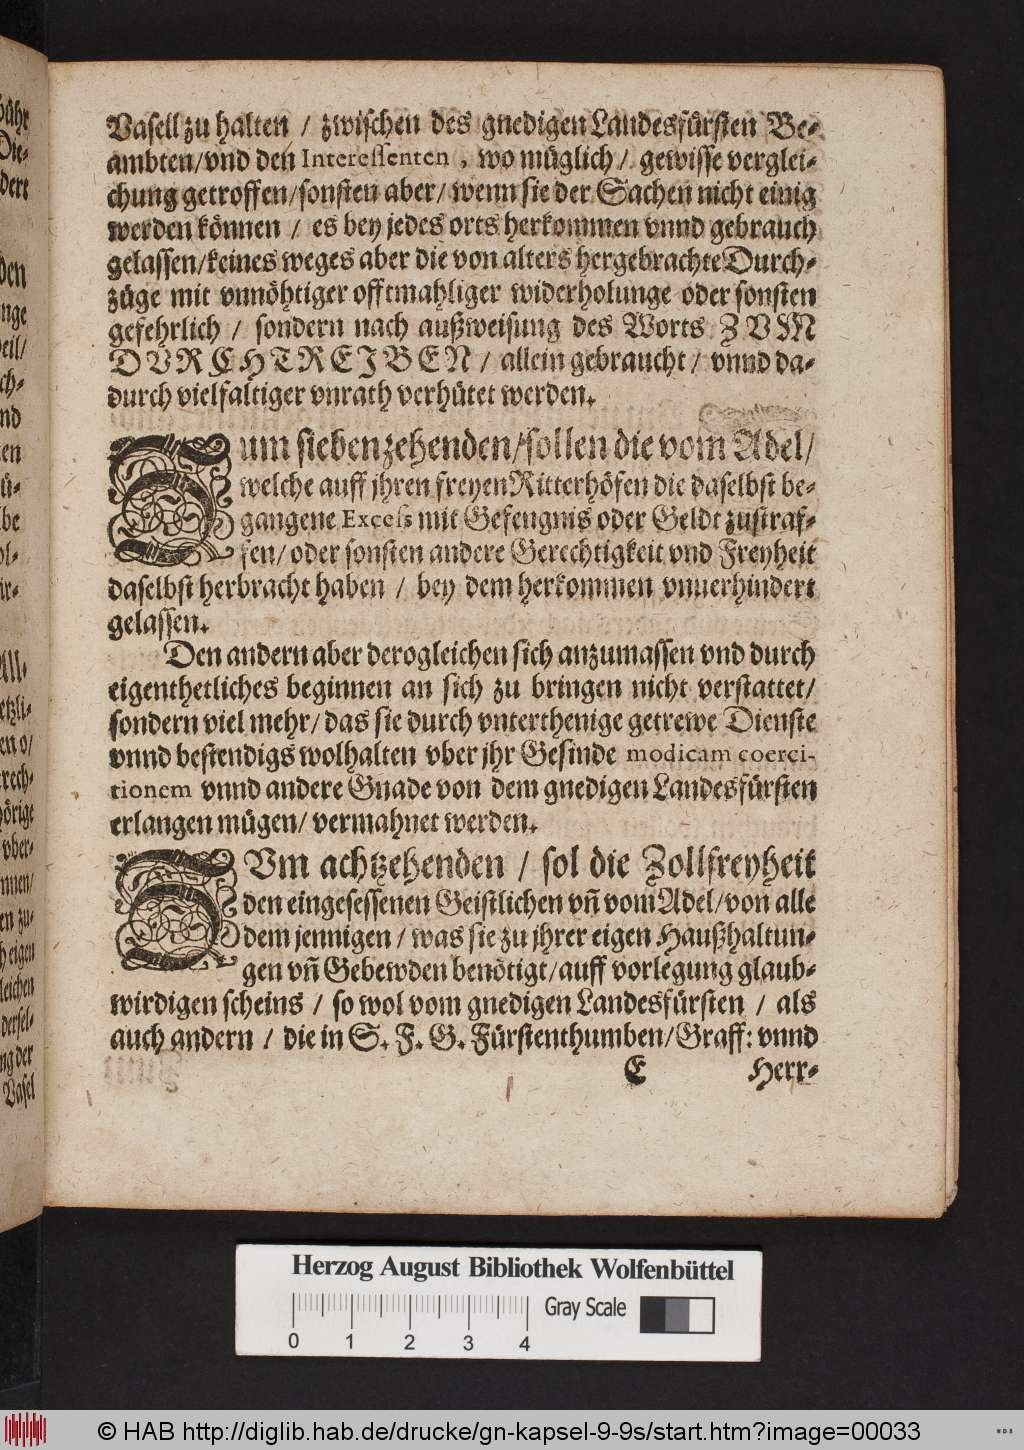 Vasell zu halten / zwischen des gnedigen Landesfürsten Be-
ambten/vnd den Interessenten, wo müglich / gewisse verglei-
chung getroffen/sonsten aber/ wenn sie der Sachen nicht einig
werden können / es bey jedes orts herkommen vnnd gebrauch
gelassen/keines weges aber die von alters hergebrachte Durch-
züge mit vnnöhtiger offtmahliger widerholunge oder sonsten
gefehrlich / sondern nach außweisung des Worts ZVM
DVRCHTREIBEN / allein gebraucht / vnnd da-
durch vielfaltiger vnrath verhütet werden.
Zum siebenzehenden/sollen die vom Adel/
welche auff jhren freyen Ritterhöfen die daselbst be-
gangene Excess mit Gefengnis oder Geldt zustraf-
fen/ oder sonsten andere Gerechtigkeit vnd Freyheit
daselbst herbracht haben / bey dem herkommen vnuerhindert
gelassen.
Den andern aber derogleichen sich anzumassen vnd durch
eigenthetliches beginnen an sich zu bringen nicht verstattet/
sondern viel mehr/ das sie durch vnterthenige getrewe Dienste
vnnd bestendigs wolhalten vber jhr Gesinde modicam coerci-
tionem vnnd andere Gnade von dem gnedigen Landesfürsten
erlangen mügen/ vermahnet werden.
ZVm achtzehenden / sol die Zollfreyheit
den eingesessenen Geistlichen vñ vom Adel/von alle
dem jennigen / was sie zu jhrer eigen Haußhaltun-
gen vñ Gebewden benötigt/auff vorlegung glaub-
wirdigen scheins / so wol vom gnedigen Landesfürsten / als
auch andern / die in S. F. G. Fürstenthumben/Graff: vnnd
E Herr-
Herzog August Bibliothek Wolfenbüttel
Gray Scale
0 1 2 3 4
© HAB http://diglib.hab.de/drucke/gn-kapsel-9-9s/start.htm?image=00033